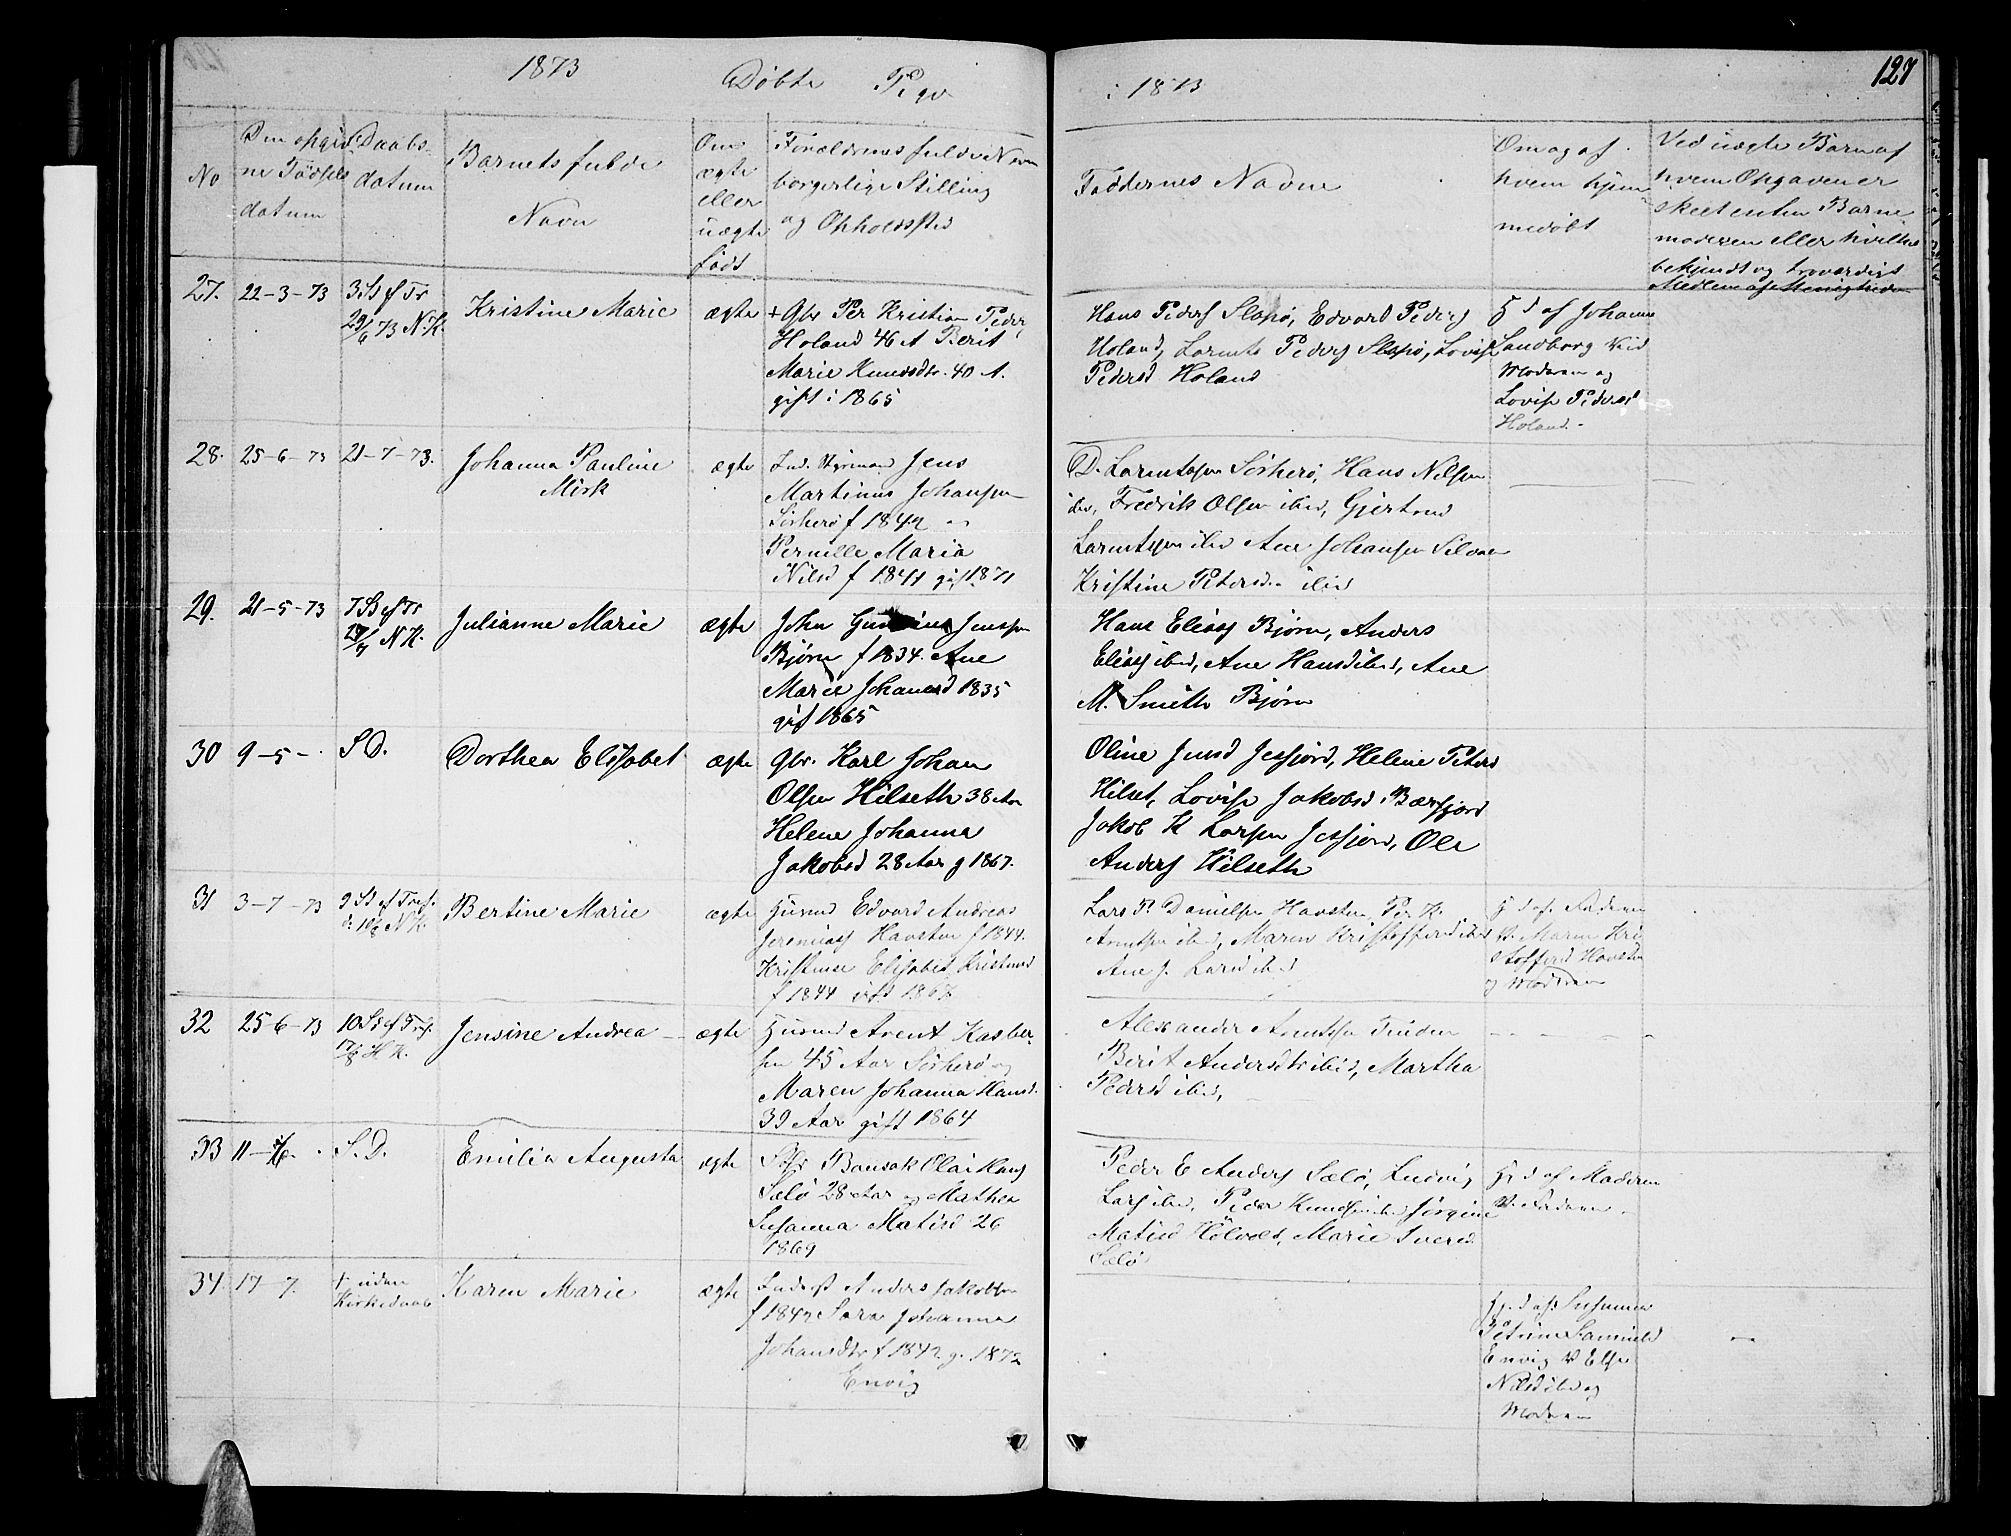 1873
Døbte Piger
i 1873
127
No
Den opgiv
ne Födsels
datum
Daabs-
datum
Barnets fulde
Navn
Om
ægte
eller
uægte
født
Forældrenes fulde Navn
borgerlige Stilling
og Opholdssted
Faddernes Navne
Om og af
hvem hjem
medöbt
Ved uægte Børn af
hvem Opgaven er
skeet enten Barne
moderen eller hvilket
bekjendt og troværdigt
Medlem af Menigheden
27.
22-3-73
3 S ef Tr
29/6 73 N.K.
Kristine Marie
ægte
+ Gbr Per Kristian Peders
Holand 46 A Berit
Marie Knudsdtr. 40 A.
gift i 1865
Hans Peders Slapö, Edvard Peders
Holand, Larents Peders Slapö, Lovise
Pedersd Holand
Hd af Johanna
Sandborg Ved
Moderen og
Lovise Pedersd
Holand.
28.
25-6-73
21-7-73.
Johanna Pauline
Mörk
ægte
Ind. Styrmand Jens
Martinus Johansen
Sörherö f 1842 og
Pernille Maria
Nilsd f 1841 gift 1871
D. Larentsen Sörherö, Hans Nilsen
ibid, Fredrik Olsen ibid, Gjertrud
Larentsen ibid Ane Johansen Selvær
Kristine Petersd. ibid
29.
21-5-73
7 S ef Tr
27/7 N K.
Julianne Marie
ægte
John Jenssen
Björn f 1834. Ane
Marie Johansd 1835
gif 1865
Hans Eliass Björn, Anders
Eliass ibid, Ane Hansd ibid, Ane
M. Smith Björn
30
9-5-
S D.
Dorthea Elisabet
ægte
Gbr. Karl Johan
Olsen Hilseth 38 Aar
Helene Johanna
Jakobsd 28 Aar g 1867.
Oline Jensd Jesfjord, Helene Peters
Hilset, Lovise Jakobsd Bærfjord
Jakob K Larsen Jesfjord, Ole
Anders Hilseth
31
3-7-73
9 S ef Tref.
d: 10/8 N K.
Bertine Marie
ægte
Husmd Edvard Andreas
Jeremiass Havsten f 1844.
Kristense Elisabet Kristensd
f 1844 gift 1867
Lars P. Danielsen Havsten, Per K.
Arntsen ibid, Maren Kristoffersd ibid
Ane J. Larsd ibid
H d af Faderen
V. Maren Kri
stoffersd Havsten
og Moderen
32
25 6-73
10 S ef Tref.
17/8 H K.
Jensine Andrea
ægte
Husmd Arent Kasber
sen 45 Aar Sörherö og
Maren Johanna Hansd.
39 Aar gift 1864
Alexander Arentsen Tinden
Berit Andersdtr ibid, Martha
Pedersd ibid,
33
11-
S. D.
Emilia Augusta
ægte
Bansak Olai Hans
Sælö 28 Aar og Mathea
Susanna Matisd 26
1869
Peder E Anders Sælö, Ludvig
Lars ibid, Peder Knudsen ibid Jörgine
Matisd Hölvold, Marie Iversd.
Sælö
H d af Moderen
V. Faderen.
34
17-7.
+ uden
Kirkedaab
Karen Marie
ægte
Inderst Anders Jakobsen
f 1842 Sara Johanna
Johansdtr f 1842 g. 1872
Envig
Hj. d af Susanna
Petrine Samuelsd
Envig V Else
Nilsd ibid og
Moderen